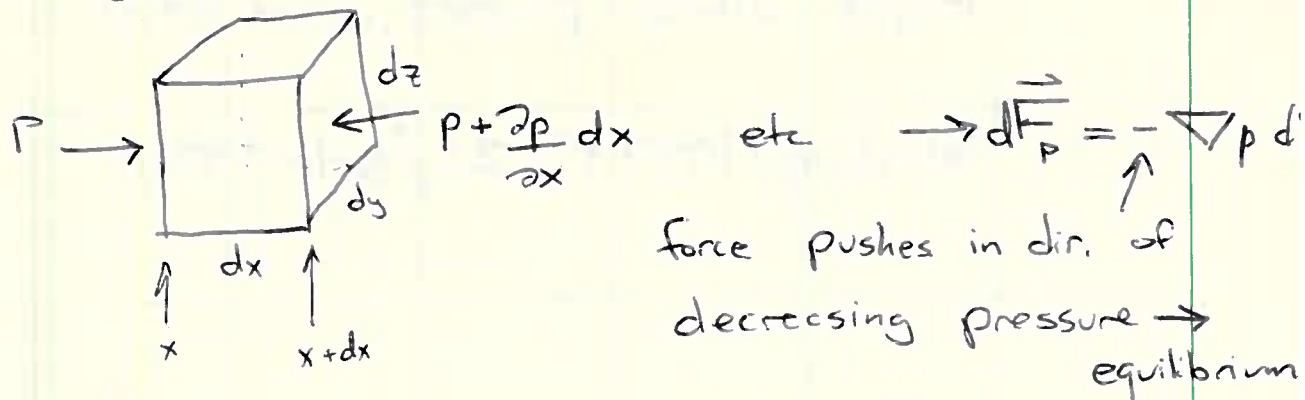 dz
P → ← p + ∂p/∂x dx etc → dF⃗_p = - ∇p d
dy
force pushes in dir. of
dx
decreasing pressure →
x x+dx
equilibrium